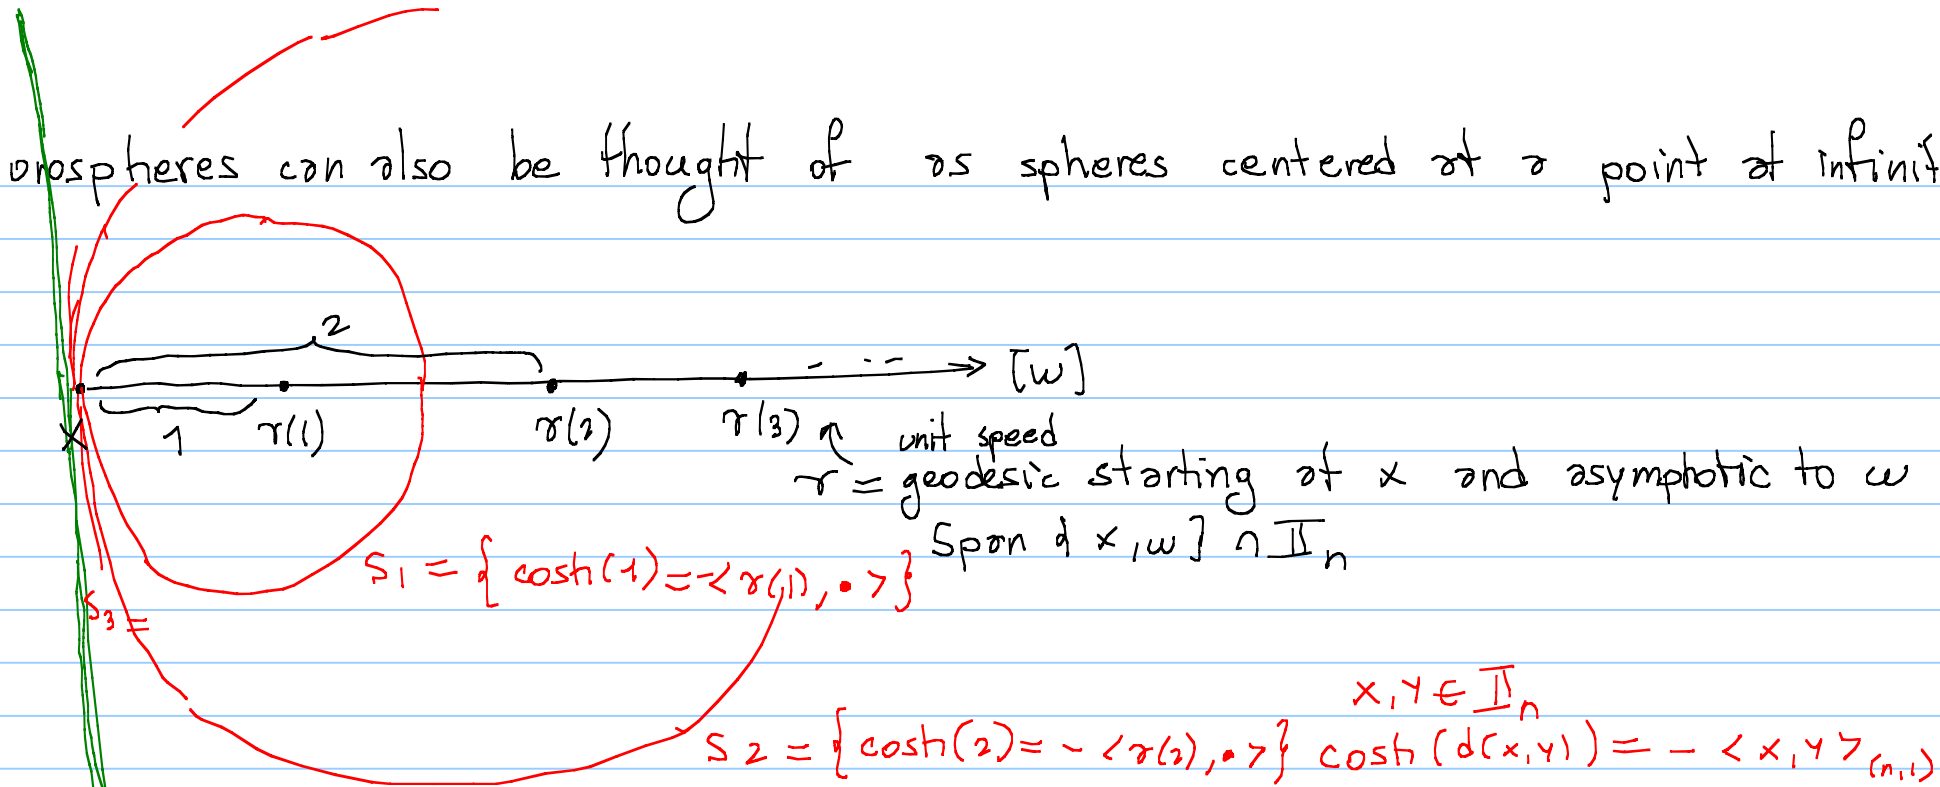 orospheres can also be thought of as spheres centered at a point at infinit
2
[w]
x 1 r(1) r(2) r(3) unit speed
r = geodesic starting at x and asymphotic to w
Span { x, w } ∩ II_n
S_1 = { cosh(1) = -< r(1), • > }
S_3 =
x, y ∈ II_n
S_2 = { cosh(2) = - < r(2), • > } cosh(d(x,y)) = - < x, y >_(n,1)